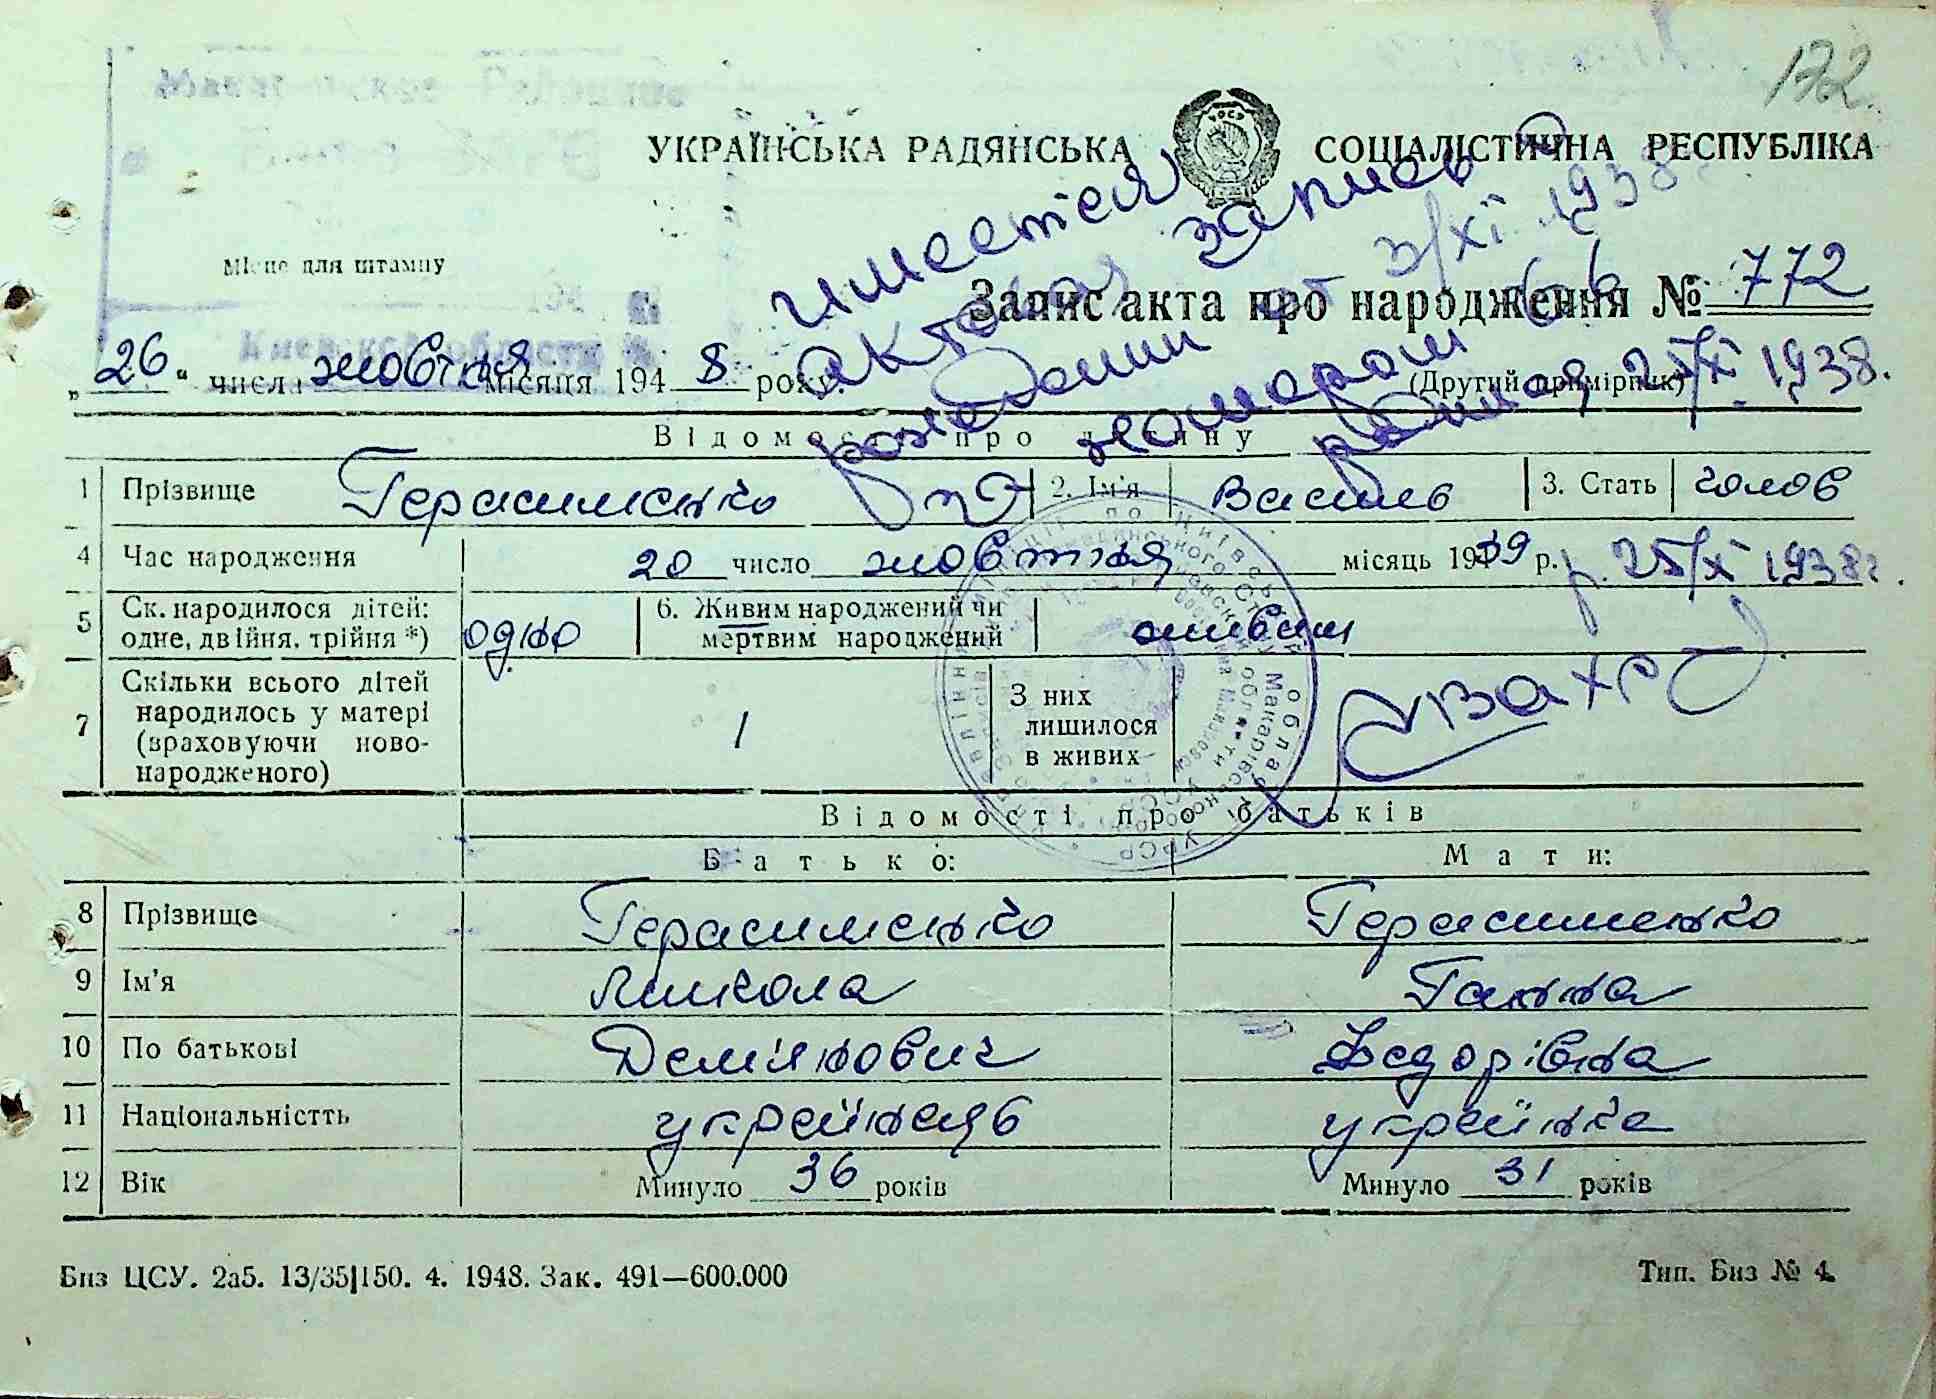 172.
УКРАЇНСЬКА РАДЯНСЬКА СОЦІАЛІСТИЧНА РЕСПУБЛІКА
Місце для штампу
Киевской области
Запис акта про народження № 772
„26“ числа жовтня місяця 1948 року.
(Другий примірник)
имеется
актовая запись о
рождении от 3/XI 1938 г.
номером 66
25/X 1938.
Відомості про дитину
1 Прізвище Герасименко 2. Ім'я Василь 3. Стать чолов
4 Час народження 20 число жовтня місяць 1939 р. р. 25/X 1938 г.
5 Ск. народилося дітей: одне, двійня, трійня *) одно 6. Живим народжений чи мертвим народжений живим
7 Скільки всього дітей народилось у матері (враховуючи ново-народженого) 1 З них лишилося в живих
Відомості про батьків
Батько: Мати:
8 Прізвище Герасименко Герасименко
9 Ім'я Микола Ганна
10 По батькові Дем'янович Федорівна
11 Національністть українець українка
12 Вік Минуло 36 років Минуло 31 років
Биз ЦСУ. 2а5. 13/35|150. 4. 1948. Зак. 491—600.000 Тип. Биз № 4.